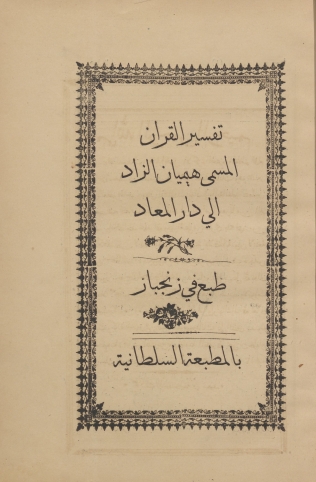 تفسير القران
المسمى هميان الزاد
الي دار المعاد
طبع في زنجبار
بالمطبعة السلطانية